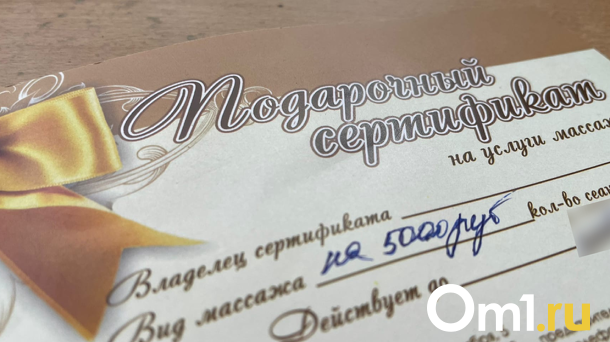 Подарочный
сертификат
на услуги массаж
Владелец сертификата
Вид массажа на 5000 руб кол-во сеан
Действует до
Om1.ru